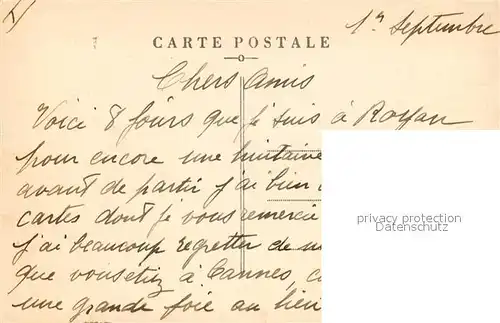 1er Septembre
CARTE POSTALE
Chers Amis
Voici 8 jours que je suis à Royan
pour encore une huitaine
avant de partir j'ai bien
cartes dont je vous remercie
j'ai beaucoup regretter de
que vous étiez à Cannes,
une grande foie au lieu
privacy protection
Datenschutz